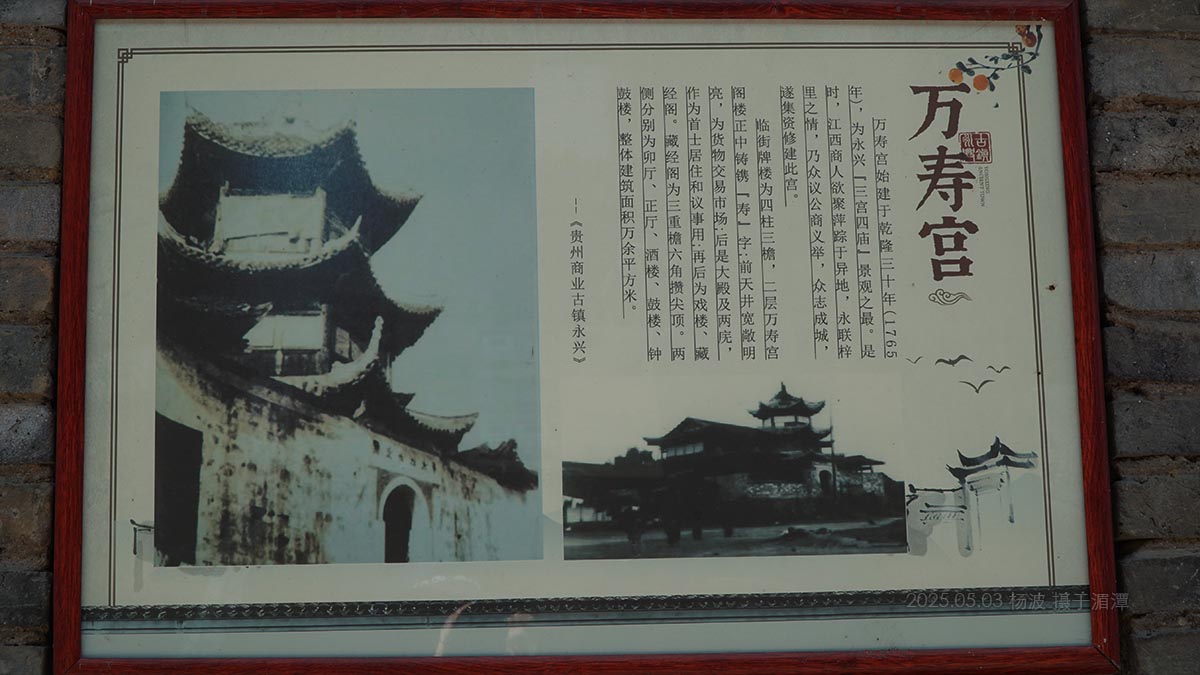 万寿宫
古镇
万寿宫始建于乾隆三十年(1765
年)，为永兴『三宫四庙』景观之最。是
时，江西商人欲聚萍踪于异地，永联梓
里之情，乃众议公商义举，众志成城，
遂集资修建此宫。
临街牌楼为四柱三檐，二层万寿宫
阁楼正中铸镌『寿』字；前天井宽敞明
亮，为货物交易市场；后是大殿及两庑，
作为首士居住和议事用；再后为戏楼、藏
经阁。藏经阁为三重檐六角攒尖顶。两
侧分别为卯厅、正厅、酒楼、鼓楼、钟
鼓楼，整体建筑面积万余平方米。
--《贵州商业古镇永兴》
2025.05.03 杨波 摄于湄潭